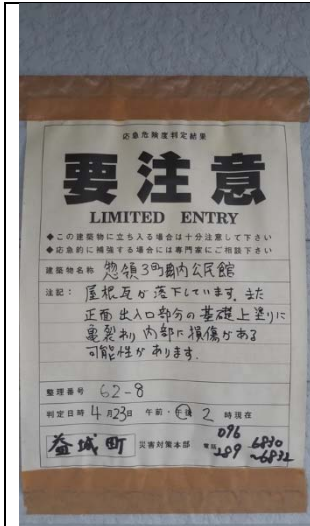 応急危険度判定結果
要注意
LIMITED ENTRY
◆この建築物に立ち入る場合は十分注意して下さい
◆応急的に補強する場合には専門家にご相談下さい
建築物名称 惣領3町内公民館
注記: 屋根瓦が落下しています。また
正面出入口部分の基礎上塗りに
亀裂有り内部に損傷がある
可能性があります。
整理番号 62-8
判定日時 4月23日 午前・午後 2 時現在
益城町 災害対策本部 電話 096
289 6830
~6832